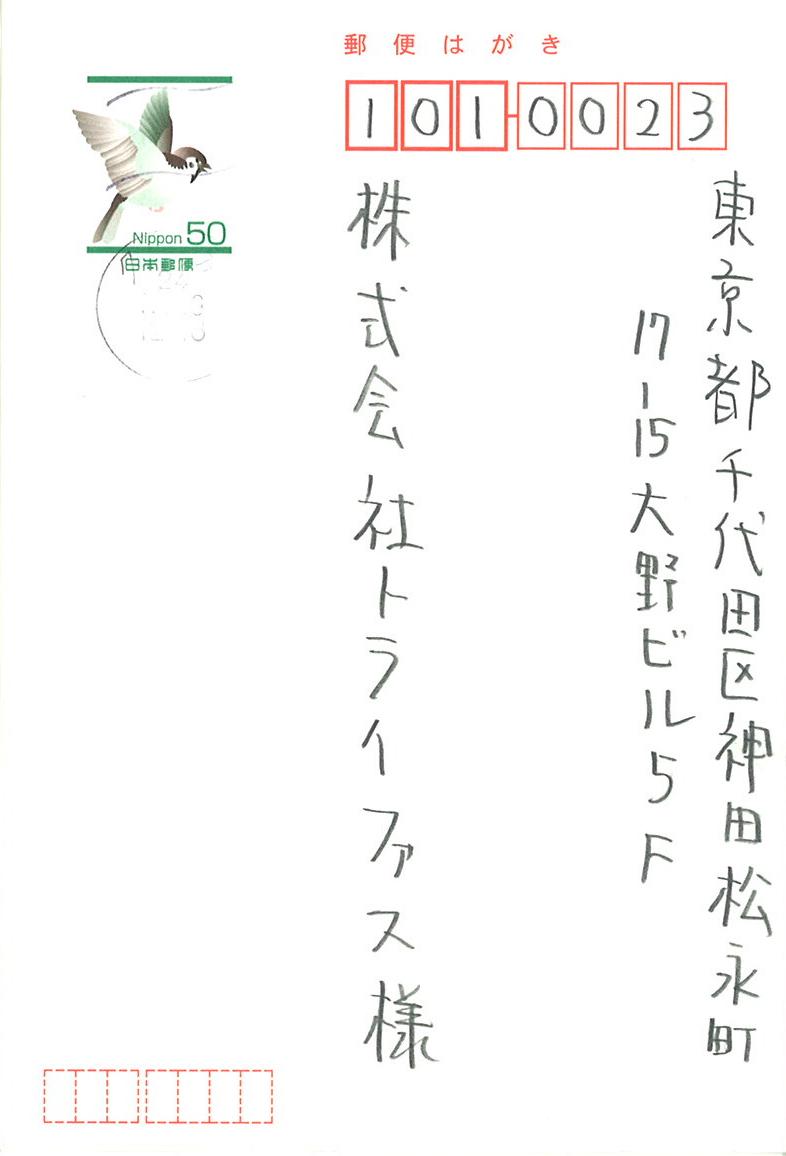 郵便はがき
101-0023
東京都千代田区神田松永町
17-15大野ビル5F
株式会社トライファス様
Nippon 50
日本郵便
24